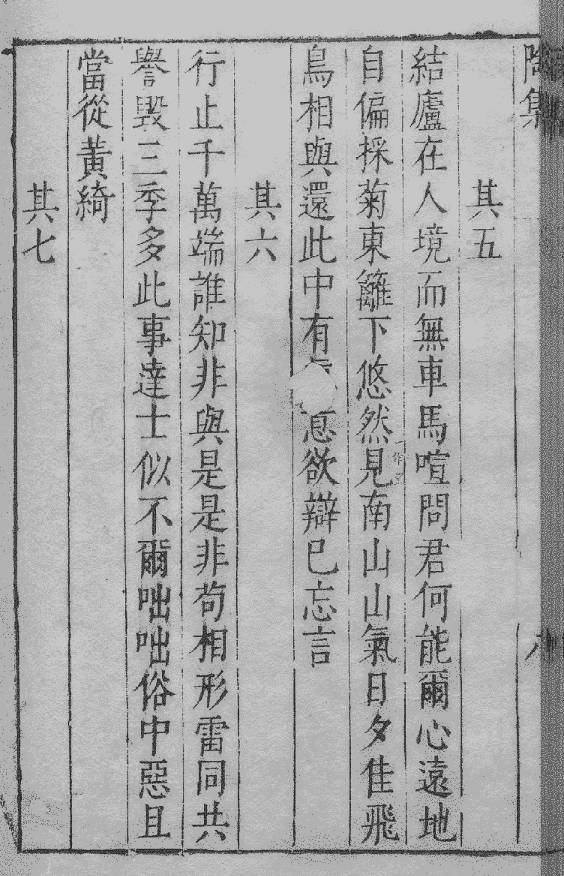 陶集
其五
結廬在人境而無車馬喧問君何能爾心遠地
自偏採菊東籬下悠然見南山山氣日夕佳飛
鳥相與還此中有意欲辯已忘言
其六
行止千萬端誰知非與是是非苟相形雷同共
譽毀三季多此事達士似不爾咄咄俗中惡且
當從黃綺
其七